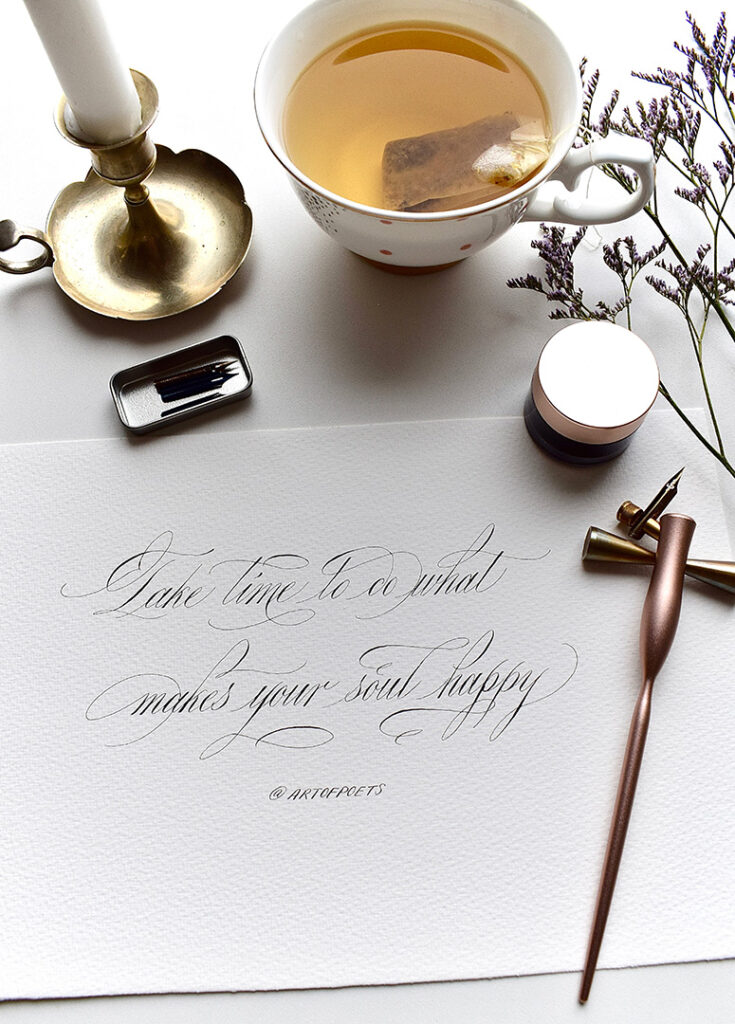 Take time to do what
makes your soul happy
@ARTOFPOETS